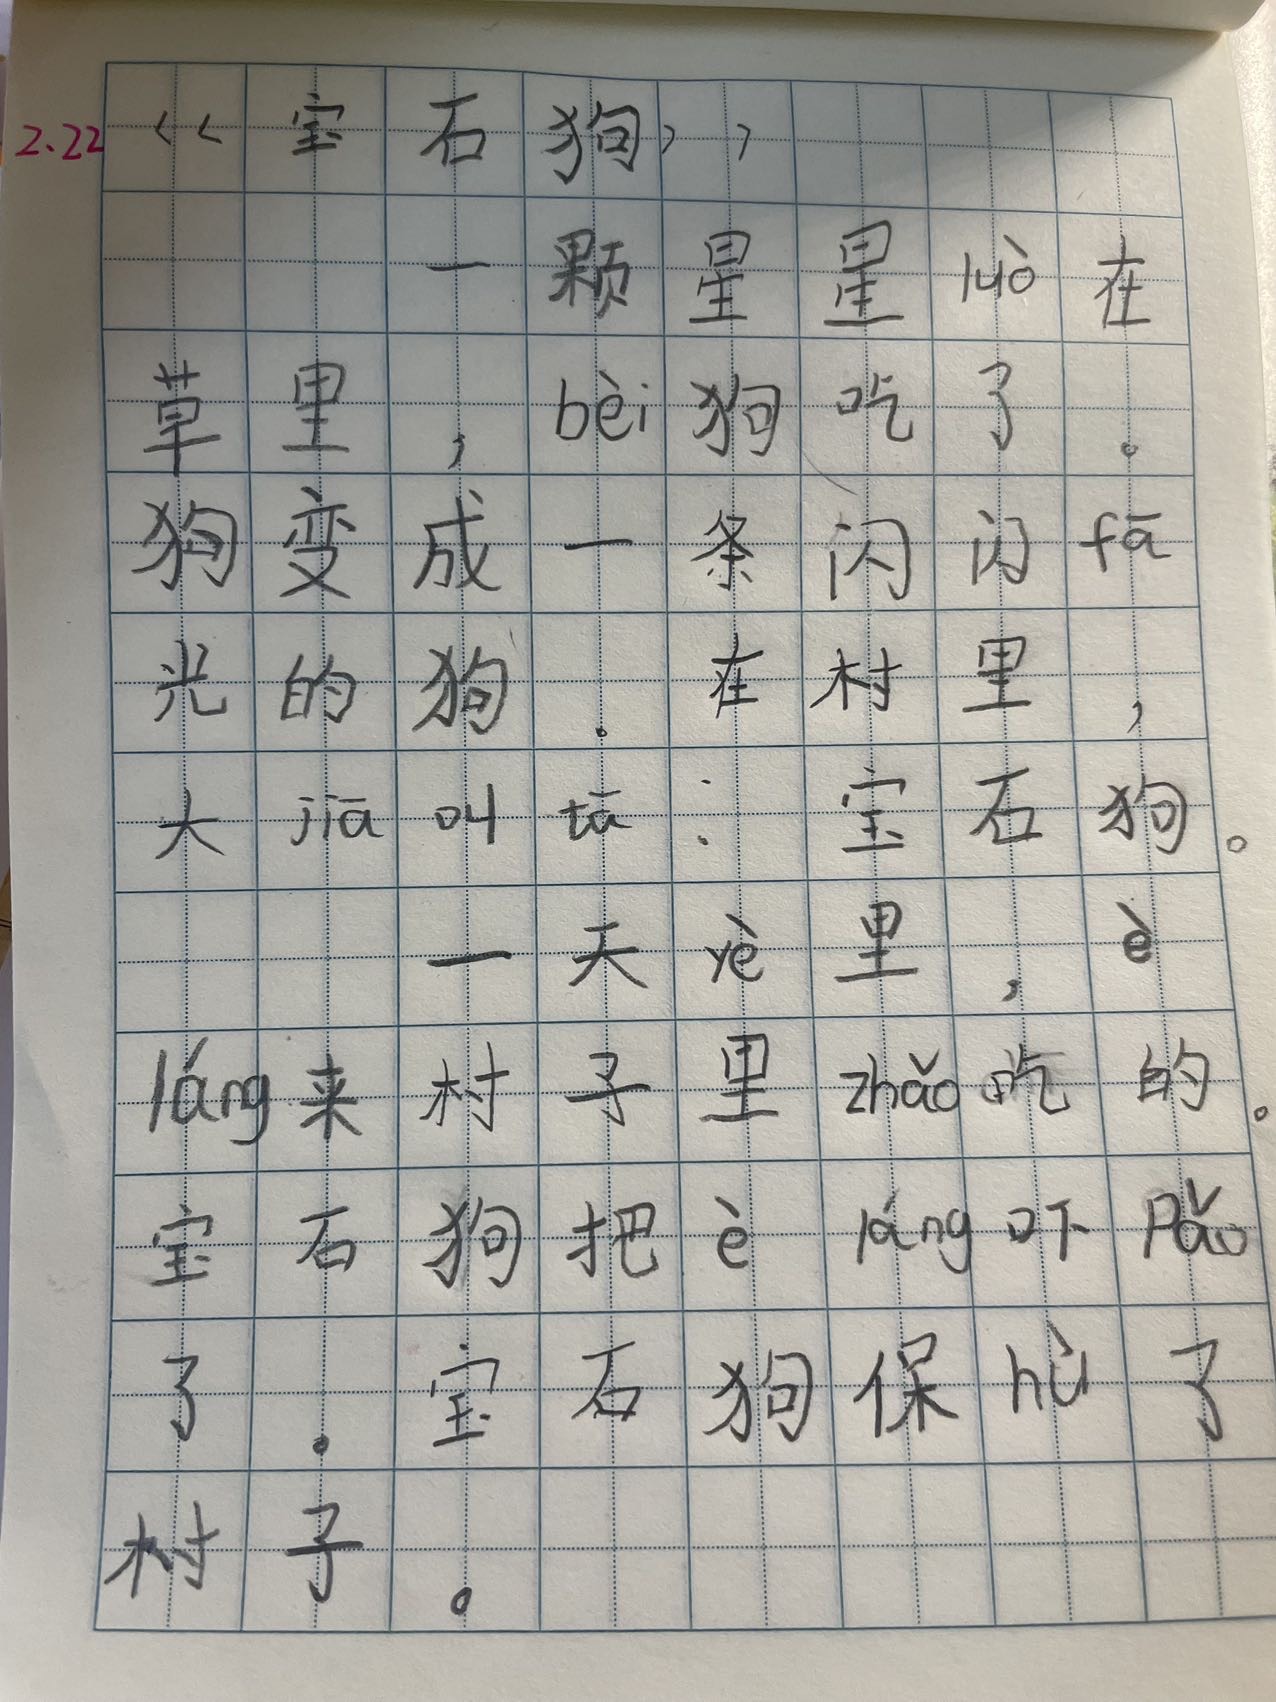 2.22《宝石狗》
一颗星星luò在
草里，bèi狗吃了。
狗变成一条闪闪fā
光的狗。在村里，
大jiā叫tā：宝石狗。
一天yè里，è
láng来村子里zhǎo吃的。
宝石狗把èláng吓pǎo
了。宝石狗保hù了
村子。